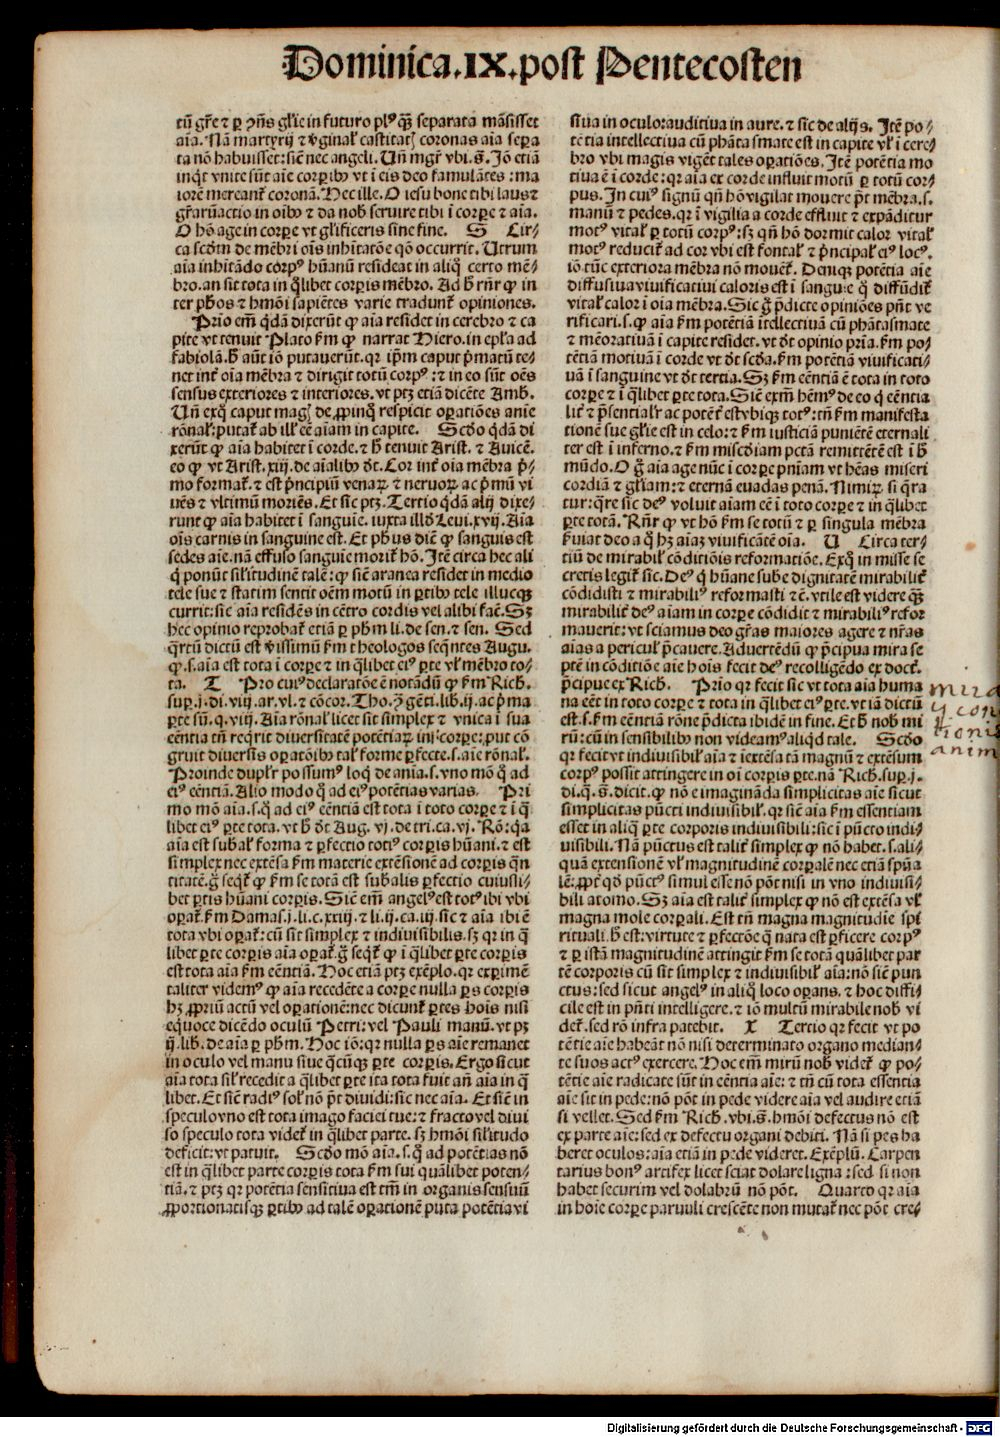 Dominica.IX.post Pentecosten
tū gr̄e ⁊ ꝑ ꝯn̄s gl'ie in futuro plꝰ q̄ꝫ separata māsisset
aīa. Nā martyrij ⁊ v̄ginal' castitatꝭ coronas aīa sepa
ta nō habuisset: sic̄ nec angeli. Un̄ mgr̄ vbi.s̄. Iō etiā
inq̇t vnite sūt aīe corꝑibꝰ vt ī eis deo famulātes : ma
iorē mereant̄ coronā. Hec ille. O iesu bone tibi laus ⁊
gr̄arūactio in oībꝰ ⁊ da nob̄ seruire tibi ī corꝑe ⁊ aīa.
O hō age in corꝑe vt gl'ificeris sine fine. S Cir⸗
ca scd̄m de mēbri oīs inhītatōe q̄o occurrit. Utrum
aīa inhītādo corpꝰ hūanū resideat in aliq̊ certo mē⸗
bro. an sit tota in q̄libet corꝑis mēbro. Ad h̄ rn̄r ꝙ in
ter ph̄os ⁊ hmōi sapiētes varie tradunt̄ opiniones.
Prīo em̄ q̇dā dixerūt ꝙ aīa residet in cerebro ⁊ ca
pite vt tenuit Plato ẜm ꝙ narrat Hiero. in epl'a ad
fabiolā. h̄ aūt iō putauerūt. qr ip̄m caput p̄matū te⸗
net int̄ oīa mēbra ⁊ dirigit totū corpꝰ : ⁊ in eo sūt oēs
sensus exteriores ⁊ interiores. vt ptꝫ etiā dicēte Amb.
Un̄ exq̊ caput magꝭ de ꝓpinq̊ respicit oꝑatiōes anīe
rōnal': putat̄ ab ill' eē aīam in capite. Scd̄o q̇dā di
xerūt ꝙ aīa habitet ī corde. ⁊ h̄ tenuit Arist. ⁊ Auicē.
eo ꝙ vt Arist. xiij. de aīalibꝰ d̄t. Cor int̄ oīa mēbra p̄⸗
mo format̄. ⁊ est p̄ncipiū venaꝝ ⁊ neruoꝝ ac p̄mū vi
uēs ⁊ vltimū moriēs. Et sic ptꝫ. Tertio q̇dā alij dixe⸗
runt ꝙ aīa habitet ī sanguīe. iuxta illd̄ Leui. xvij. Aīa
oīs carnis in sanguine est. Et ph̄us diē ꝙ sanguis est
sedes aīe. nā effuso sanguīe morit̄ hō. Itē circa hec ali
q̇ ponūt sil'itudinē talē : ꝙ sic̄ aranea residet in medio
tele sue ⁊ statim sentit oēm motū in ꝑtibꝰ tele illucqꝫ
currit: sic aīa residēs in cētro cordis vel alibi fac̄. Sꝫ
hec opinio reprobat̄ etiā ꝑ ph̄m li. de sen. ⁊ sen. Sed
q̄rtū dictū est v̄issimū ẜm theologos seq̄ntes Augu.
ꝙ.s. aīa est tota ī corꝑe ⁊ in q̄libet eiꝰ ꝑte vl' mēbro to⸗
ta. T Pro cuiꝰ declaratōe ē notādū ꝙ ẜm Rich.
suꝑ. j. di. viij. ar. vl. ⁊ cōcor. Tho. ꝯ̄ gēti. lib. ij. ac p̄ma
ꝑte sū. q. viij. Aīa rōnal' licet sit simplex ⁊ vnica ī sua
eēntia tn̄ req̇rit diuersitatē potētiaꝝ in corꝑe: ꝓut cō
gruit diuersīs oꝑatōibꝰ tal' forme ꝑfecte.s. aīe rōnal'.
Proinde dupl'r possumꝰ loq̇ de anīa.s. vno mō q̊ ad
eiꝰ eēntiā. Alio modo q̊ ad eiꝰ potētias varias. Pri
mo mō aīa.s. q̊ ad eiꝰ eēntiā est tota ī toto corꝑe ⁊ ī q̄
libet eiꝰ ꝑte tota. vt h̄ d̄t Aug. vj. de tri. ca. vj. Rō: q̇a
aīa est sub̄al' forma ⁊ ꝑfectio totiꝰ corꝑis hūani. ⁊ est
simplex nec extēsa ẜm materie extēsionē ad corꝑis q̄n
titatē. ḡ seq̇t̄ ꝙ ẜm se totā est sub̄alis ꝑfectio cuiusli⸗
bet ꝑtis hūani corꝑis. Sic̄ em̄ angelꝰ est totꝰ ibi vbi
oꝑat̄ ẜm Damas. j. li. c. xxiij. ⁊ li. ij. ca. iij. sic ⁊ aīa ibi ē
tota vbi oꝑat̄: cū sit simplex ⁊ indiuisibilis. sꝫ qr in q̄
libet ꝑte corꝑis aīa oꝑat̄. ḡ seq̇t̄ ꝙ ī q̄libet ꝑte corꝑis
est tota aīa ẜm eēntiā. Hoc etiā ptꝫ exēplo. qr exꝑimē
taliter videmꝰ ꝙ aīa recedēte a corꝑe nulla ꝑs corꝑis
hꝫ ꝓpriū actū vel oꝑationē: nec dicunt̄ ꝑtes hoīs nisi
eq̇uoce dicēdo oculū Petri: vel Pauli manū. vt ptꝫ
ij. lib. de aīa ꝑ ph̄m. Hoc iō: qr nulla ꝑs aīe remanet
in oculo vel manu siue q̄cūqꝫ ꝑte corꝑis. Ergo sicut
aīa tota sil' recedit a q̄libet ꝑte ita tota fuit an̄ aīa in q̄
libet. Et sic̄ radiꝰ sol' nō p̄t diuidi: sic nec aīa. Et sic̄ in
speculo vno est tota imago faciei tue: ⁊ fracto vel diui
so speculo tota videt̄ in q̄libet parte. sꝫ hmōi sil'itudo
deficit: vt patuit. Scd̄o mō aīa.s. q̊ ad potētias nō
est in q̄libet parte corꝑis tota ẜm sui quālibet poten⸗
tiā. ⁊ ptꝫ qr potētia sensitiua est tm̄ in organis sensuū
ꝓportionatisqꝫ ꝑtibꝰ ad talē oꝑationē puta potētia vi
siua in oculo: auditiua in aure. ⁊ sic de alijs. Itē po⸗
tētia intellectiua cū phātasmate est in capite vl' ī cere⸗
bro vbi magis vigēt tales oꝑatiōes. Itē potētia mo
tiua ē ī corde: qr aīa ex corde influit motū ꝑ totū cor⸗
pus. In cuiꝰ signū qn̄ hō vigilat mouere p̄t mēbra.s.
manū ⁊ pedes. qr ī vigilia a corde effluit ⁊ expāditur
motꝰ vital' ꝑ totū corpꝰ: sꝫ qn̄ hō dormit calor vital'
motꝰ reducit̄ ad cor vbi est fontal' ⁊ p̄ncipal' eiꝰ locꝰ.
iō tūc exteriora mēbra nō mouet̄. Deniqꝫ potētia aīe
diffusiua viuificatiui caloris est ī sanguīe q̄ diffūdit̄
vital' calor ī oīa mēbra. Sic ḡ p̄dicte opiniōes pn̄t ve
rificari.s. ꝙ aīa ẜm potētiā ītellectiuā cū phātasmate
⁊ mēoratiuā ī capite residet. vt d̄t opinio prīa. ẜm po⸗
tētiā motiuā ī corde vt d̄t scd̄a. ẜm potētiā viuificati⸗
uā ī sanguine vt d̄t tertia. Sꝫ ẜm eēntiā ē tota in toto
corꝑe ⁊ ī q̄libet ꝑte tota. Sic̄ exm̄ hēmꝰ de eo q̇ eēntia
lit̄ ⁊ p̄sentialr̄ ac potēt̄ est vbiqꝫ totꝰ: tn̄ ẜm manifesta
tionē sue gl'ie est in celo: ⁊ ẜm iusticiā puniētē eternali
ter est ī inferno. ⁊ ẜm misc̄diam pctā remittētē est ī h̄
mūdo. O ḡ aīa age nūc ī corꝑe pn̄iam vt hēas miseri
cordiā ⁊ gl'iam: ⁊ eternā euadas penā. Nimiꝝ si q̄ra
tur: q̄re sic deꝰ voluit aīam eē ī toto corꝑe ⁊ in q̄libet
ꝑte totā. Rn̄r ꝙ vt hō ẜm se totū ⁊ ꝑ singula mēbra
ẜuiat deo a q̊ hꝫ aīaꝫ viuificātē oīa. U Circa ter⸗
tiū de mirabil' cōditiōis reformatiōe. Exq̊ in misse se
cretis legit̄ sic. Deꝰ q̇ hūane sub̄e dignitatē mirabilit̄
cōdidisti ⁊ mirabiliꝰ reformasti ⁊c̄. vtile est videre q̄ꝫ
mirabilit̄ deꝰ aīam in corꝑe cōdidit ⁊ mirabiliꝰ refor
mauerit: vt sciamus deo gr̄as maiores agere ⁊ nr̄as
aīas a pericul' p̄cauere. Aduertēdū ꝙ p̄cipua mira se
ptē in cōditiōe aīe hoīs fecit deꝰ recolligēdo ex doct̄.
p̄cipue ex Rich. Prīo qr fecit sic vt tota aīa huma
na eēt in toto corꝑe ⁊ tota in q̄libet eiꝰ ꝑte. vt iā dictū
est.s. ẜm eēntiā rōne p̄dicta ibidē in fine. Et h̄ nob̄ mi
rū: cū in sensibilibꝰ non videamꝰ aliq̇d tale. Scd̄o
qr fecit vt indiuisibil' aīa ⁊ īextēsa tā magnū ⁊ extēsum
corpꝰ possit attingere in oī corꝑis ꝑte. nā Rich. suꝑ. j.
di. q̄. s̄. dicit. ꝙ nō ē imagināda simplicitas aīe sicut
simplicitas pūcti indiuisibil'. qr sic̄ aīa ẜm essentiam
esset in aliq̊ ꝑte corporis indiuisibili: sic ī pūcto indi⸗
uisibili. Nā pūctus est talit̄ simplex ꝙ nō habet.s. ali⸗
quā extensionē vl' magnitudinē corꝑalē nec etiā spūa
lē: ꝓpt̄ qd̄ pūctꝰ simul esse nō pōt nisi in vno indiuisi⸗
bili atomo. Sꝫ aīa est talit̄ simplex ꝙ nō est extēsa vl'
magna mole corꝑali. Est tn̄ magna magnitudīe spi
rituali. h̄ est: virtute ⁊ ꝑfectōe q̄ nata est ꝑficere corpꝰ
⁊ ꝑ istā magnitudinē attingit ẜm se totā quālibet par
tē corporis cū sit simplex ⁊ indiuisibil' aīa: nō sic̄ pun
ctus: sed sicut angelꝰ in aliq̊ loco oꝑans. ⁊ hoc diffi⸗
cile est in pn̄ti intelligere. ⁊ iō multū mirabile nob̄ vi
det̄. sed rō infra patebit. X Tertio qr fecit vt po
tētie aīe habeāt nō nisi determinato organo median⸗
te suos actꝰ exercere. Hoc em̄ mirū nob̄ videt̄ ꝙ po⸗
tētie aīe radicate sūt in eēntia aīe: ⁊ tn̄ cū tota essentia
aīe sit in pede: nō pōt in pede videre aīa vel audire etiā
si vellet. Sed ẜm Rich. vbi.s̄. hmōi defectus nō est
ex parte aīe: sed ex defectu organi debiti. Nā si pes ha
beret oculos: aīa etiā in pede videret. Exēplū. Carpen
tarius bonꝰ artifex licet sciat dolare ligna : sed si non
habet securim vel dolabrū nō pōt. Quarto qr aīa
in hoīe corꝑe paruuli crescēte non mutat̄ nec pōt cre⸗
mira
tionis
anim
Digitalisierung gefördert durch die Deutsche Forschungsgemeinschaft - DFG